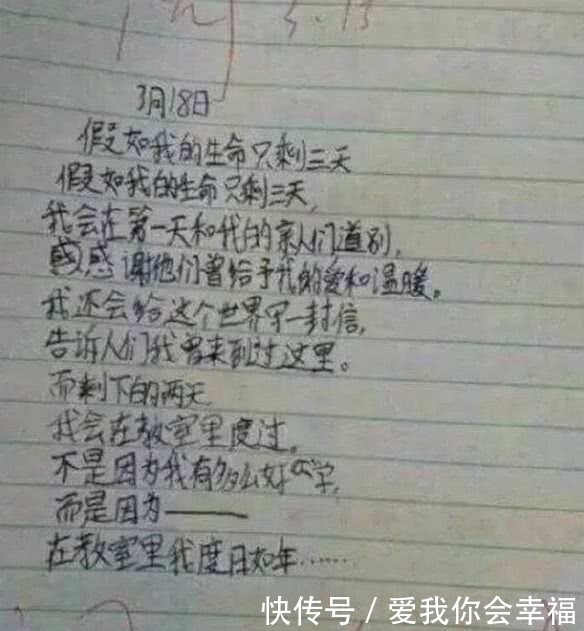 阅 3.19
3月18日
假如我的生命只剩三天
假如我的生命只剩三天,
我会在第一天和我的亲人们道别,
感感谢他们曾给予我的爱和温暖。
我还会给这个世界写一封信,
告诉人们我曾来到过这里。
而剩下的两天,
我会在教室里度过。
不是因为我有多么好学,
而是因为——
在教室里我度日如年……
快传号 / 爱我你会幸福